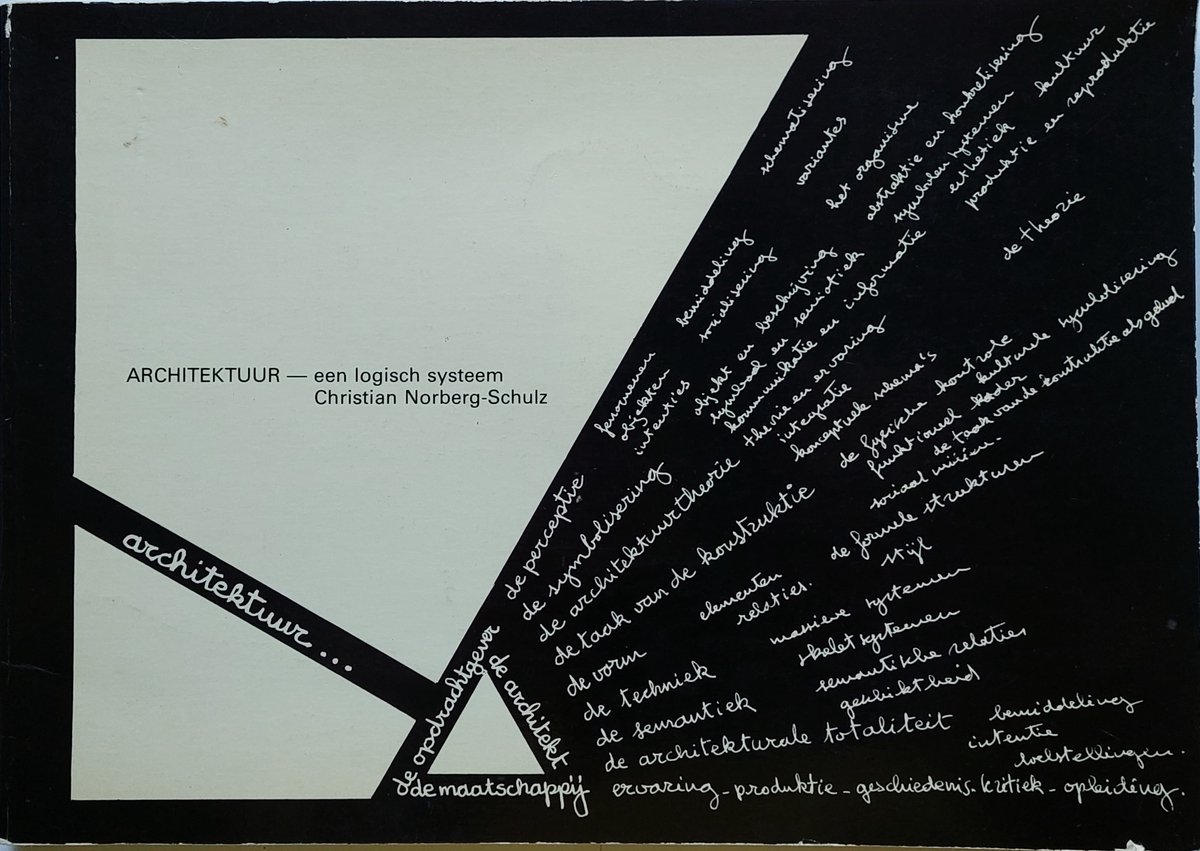 ARCHITEKTUUR — een logisch systeem
Christian Norberg-Schulz
architektuur...
de opdrachtgever
de architekt
de maatschappij
de perceptie
fenomenen
objekten
intenties
bemiddeling
socialisering
schematisering
variantes
de symbolisering
objekt en beschrijving
symbool en semiotiek
kommunikatie en informatie
het organisme
abstraktie en konkretisering
symbolen systemen
esthetiek
kultuur
produktie en reproduktie
de architektuurtheorie
theorie en ervaring
integratie
konceptuele schema's
de theorie
de taak van de konstruktie
de fysische kontrole
funktioneel kader
sociaal milieu.
kulturele symbolisering
de taak van de konstruktie als geheel
de vorm
elementen
relaties.
de formele strukturen
stijl
de techniek
massieve systemen
skeletsystemen
de semantiek
semantische relaties
geschiktheid
de architekturale totaliteit
bemiddeling
intentie
ervaring - produktie - geschiedenis. kritiek - opleiding.